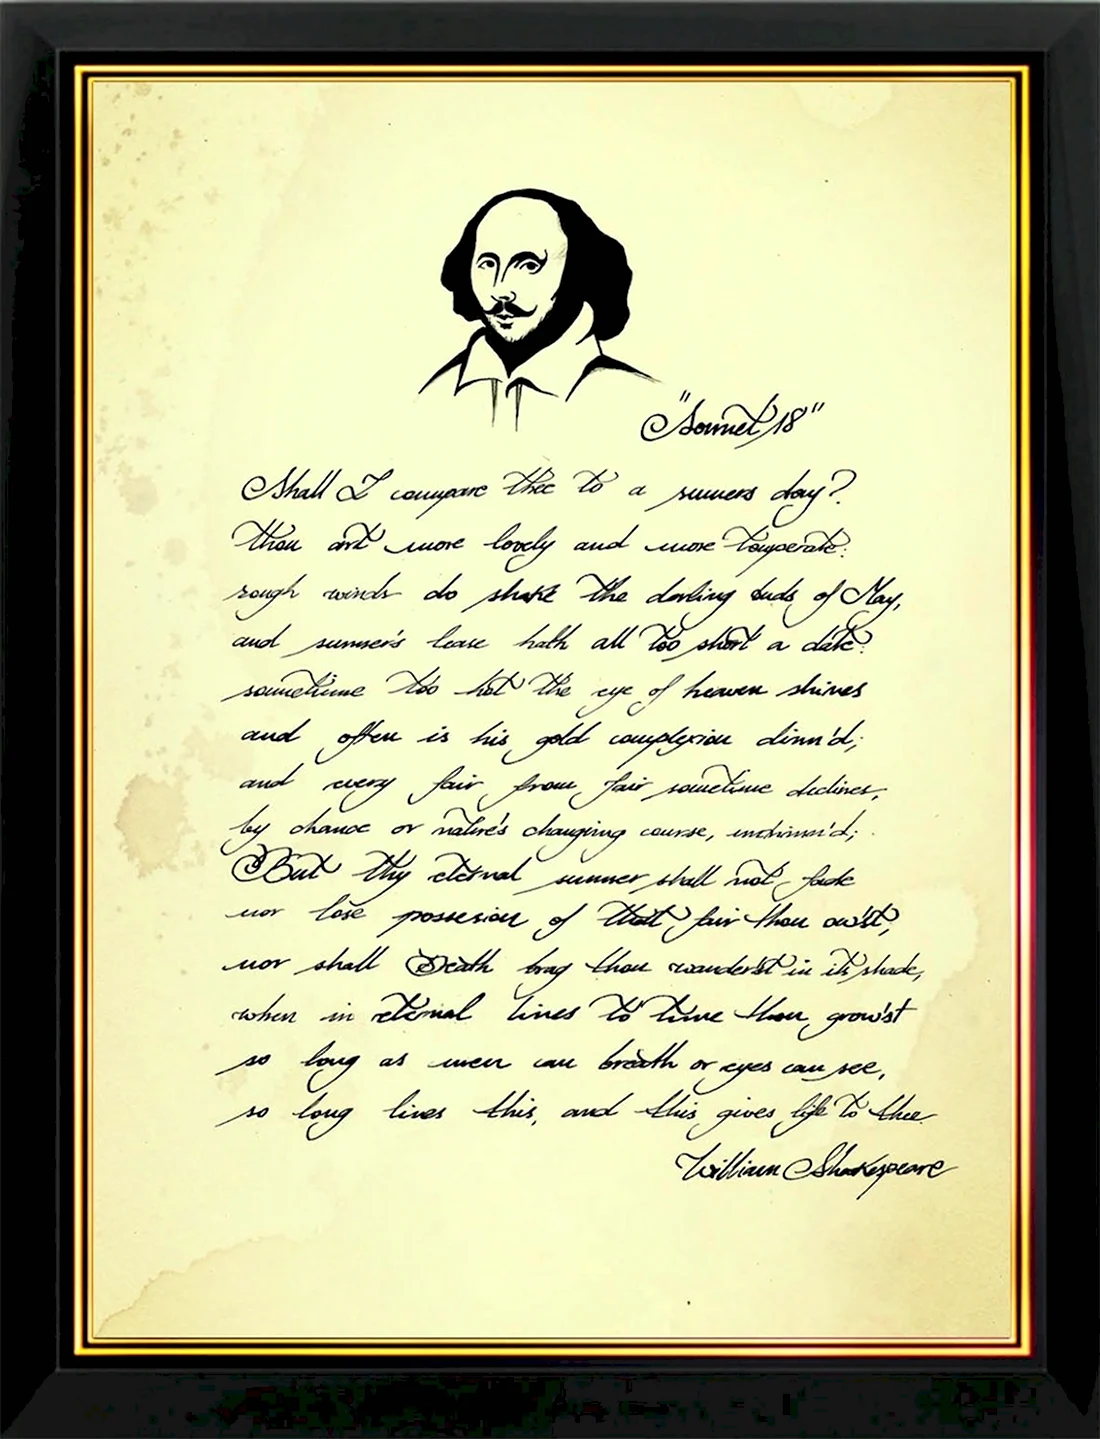 "Sonnet 18"
Shall I compare thee to a sumers day?
thou art more lovely and more temperate:
rough winds do shake the darling buds of May,
and summer's lease hath all too short a date:
sometime too hot the eye of heaven shines
and often is his gold complexion dimm'd;
and every fair from fair sometime declines,
by chance or nature's changing course, untrimm'd;
But thy eternal summer shall not fade
nor lose possesion of that fair thou ow'st,
nor shall Death brag thou wanderst in its shade,
when in eternal lines to time thou grow'st
so long as men can breath or eyes can see,
so long lives this, and this gives life to thee.
William Shakespeare